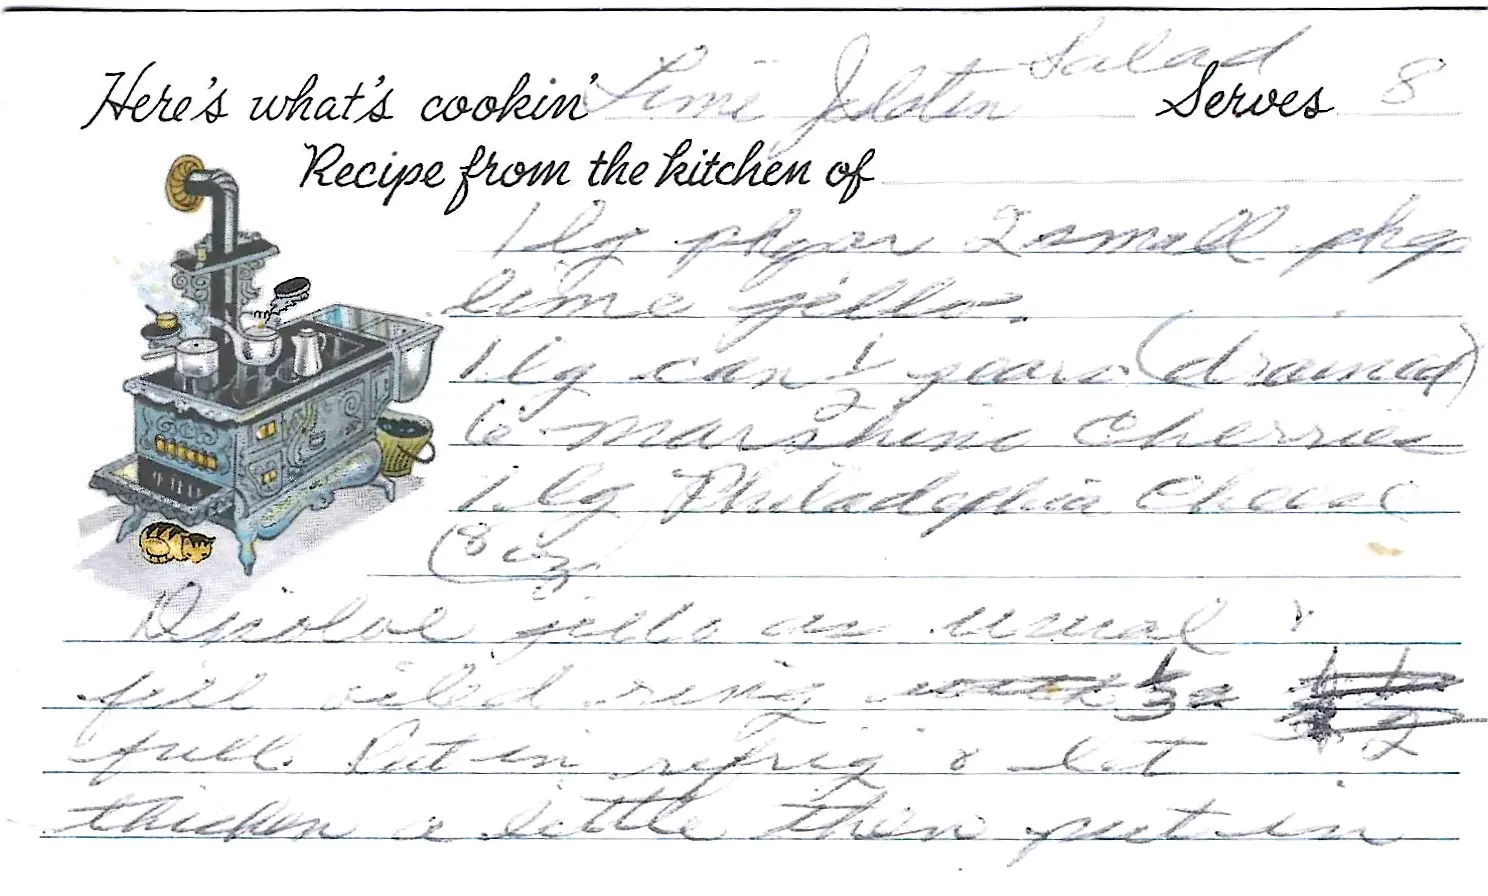 Here's what's cookin' Lime Jelatin Salad Serves 8
Recipe from the kitchen of
1 lg pkg or 2 small pkg
lime jello.
1 lg can ½ pears (drained)
6 marshino cherries
1 lg Philadephia Cheese
(8 oz
Disolve jello as usual &
fill oiled ring 1/3
full. Put in refrig & let
thicken a little then put in